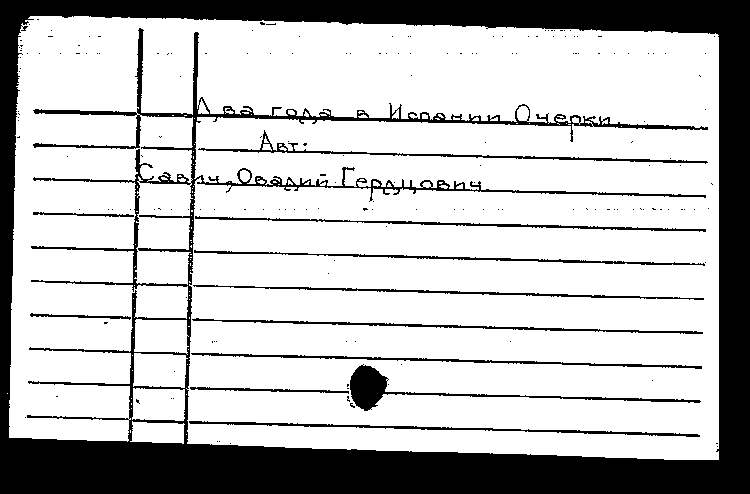 Два года в Испании Очерки.
Авт:
Савич, Овадий Гердцович